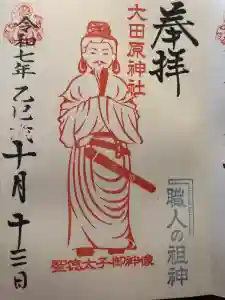 奉拝
大田原神社
職人の祖神
聖徳太子御神像
令和七年乙巳歳
十月十三日